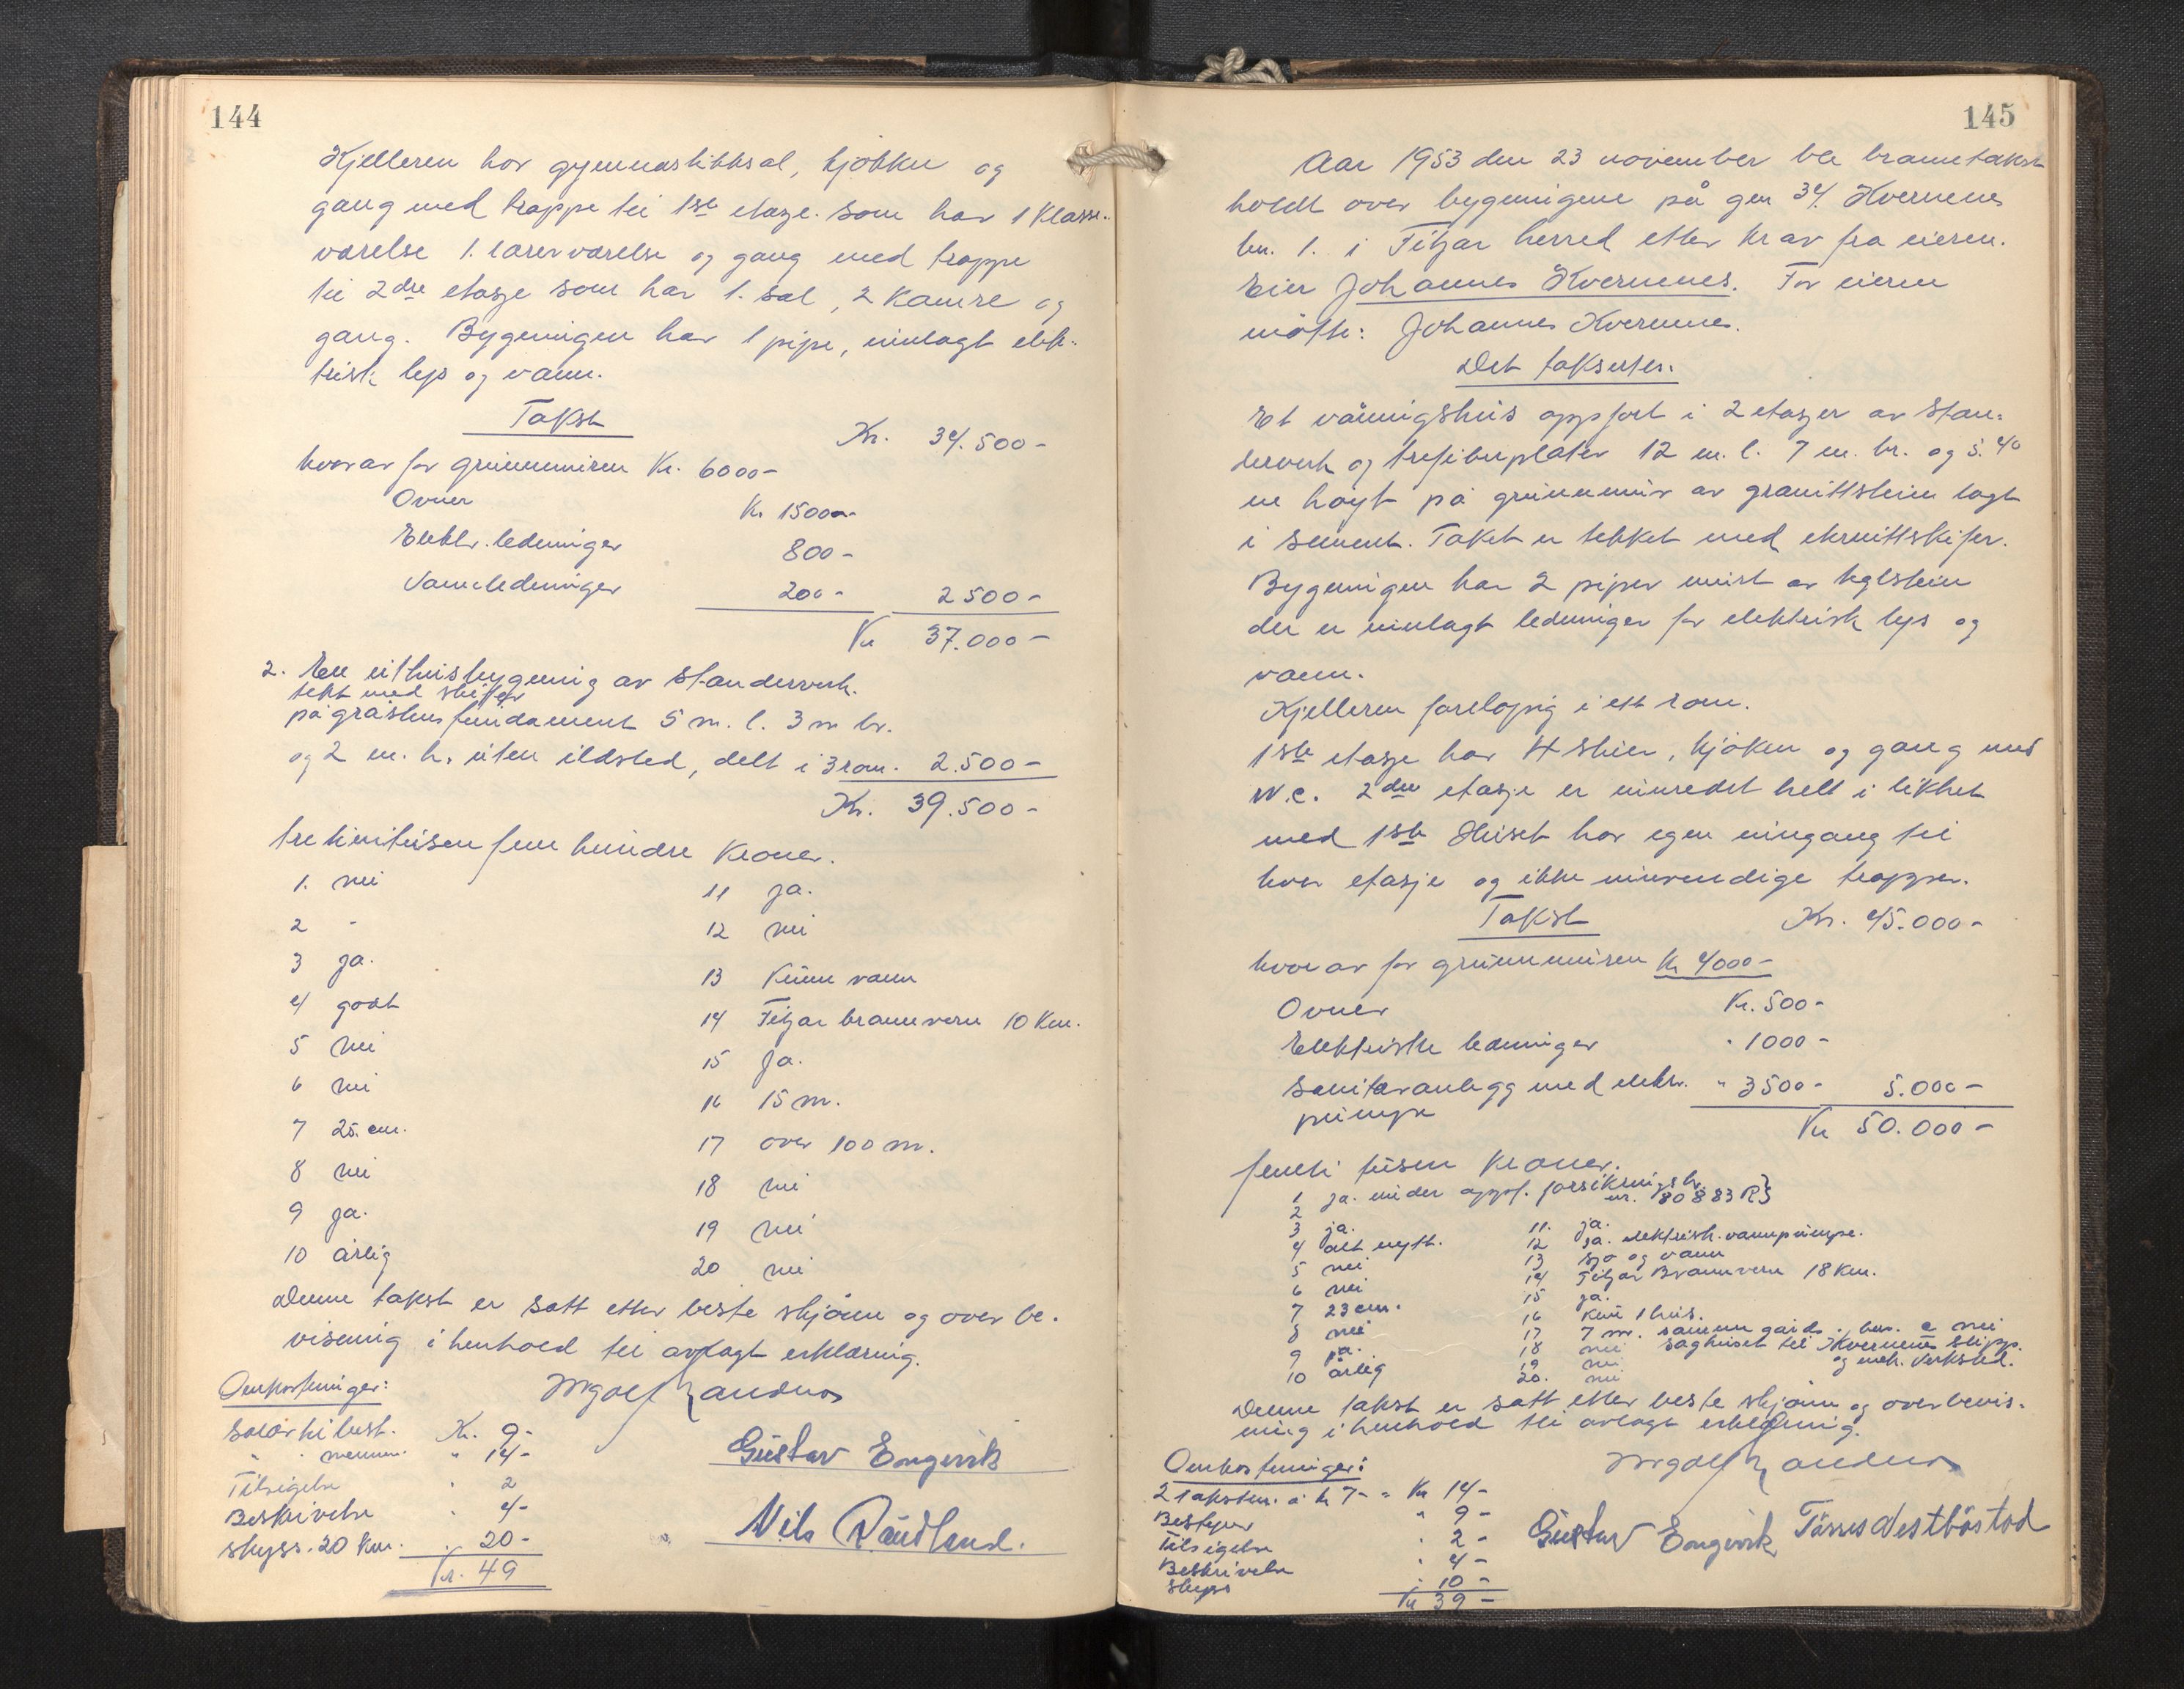 144
Kjelleren har gymnastikksal, kjökken og
gang med trappe til 1ste etasje. som har 1 Klasse-
værelse 1. lærerværelse og gang med trappe
til 2dre etasje som har 1. sal, 2 Kamre og
gang. Bygningen har 1 pipe, innlagt elek-
trisk lys og vann.
Takst Kr. 34.500-
hvorav for grunnmuren Kr. 6000-
Ovner Kr 1500-
Elektr. ledninger 800-
Vannledninger 200- 2500-
Kr 37.000-
2. En uthusbygning av standerverk.
tekt med skiffer
på gråstensfundament 5 m. l. 3 m br.
og 2 m. h. uten ildsted, delt i 3 rom. 2.500-
Kr. 39.500-
trettinitusen fem hundre Kroner.
1. nei 11 ja.
2 - 12 nei
3 ja. 13 Kunn vann
4 godt 14 Fitjar brannvern 10 Km.
5 nei 15 Ja.
6 nei 16 15 m.
7 25. cm. 17 over 100 m.
8 nei 18 nei
9 ja. 19 nei
10 årlig 20 nei
Denne takst er satt etter beste skjönn og over be-
visning i henhold til avlagt erklæring.
Omkostninger:
Salær til best. Kr. 9-
" " " 14-
Tilsigelse " 2
Beskrivelse " 4-
skyss. 20 Km. " 20-
Kr. 49
Gustav Engevik
Nils Raudland.
145
Aar 1953 den 23 november ble branntakst
holdt over bygningene på gnr 34. Kvernenes
bn. 1. i Fitjar herred etter krav fra eieren.
Eier Johannes Kvernenes. For eieren
mötte: Johannes Kvernenes.
Det takseres.
Et våningshus oppfört i 2 etasjer av stan-
derverk og trefiberplater 12 m. l. 7 m. br. og 5.40
m höyt på grunnmur av granittstein lagt
i sement. Taket er tekket med eternittskifer.
Bygningen har 2 piper murt av teglstein
der er innlagt ledninger for elektrisk lys og
vann.
Kjelleren forelöpig i ett rom.
1ste etasje har 4 stuer, kjöken og gang med
W.C. 2dre etasje er innredet helt i likhet
med 1ste Huset har egen inngang til
hver etasje og ikke innvendige trapper.
Takst Kr. 45.000-
hvorav for grunnmuren Kr 4000-
Ovner Kr. 500-
Elektriske ledninger " 1000-
Sanitæranlegg med elektr. " 3500- 5.000-
pumpe
Kr 50.000-
femti tusen Kroner.
1 ja. under oppf. forsikringsbr.
2 nr. 80883 R}
3 ja. 11. ja.
4 alt nytt. 12 ja. elektrisk. vannpumpe.
5 nei 13 sjö og vann
6 nei 14 Fitjar Brannvern 18 Km.
7 23 cm. 15 ja.
8 nei 16 kun 1 hus.
9 ja. 17 7 m. samme gårds. nei
10 årlig 18 nei saghuset til Kvernenes slipp.
19 nei og mek. Verksted.
20. nei
Denne takst er satt etter beste skjönn og overbevis-
ning i henhold til avlagt erklæring.
Omkostninger:
2 takstm. a kr 7- = Kr 14-
Bestyrer " 9-
Tilsigelse " 2-
Beskrivelse " 4-
skyss " 10-
Kr 39-
Gustav Engevik